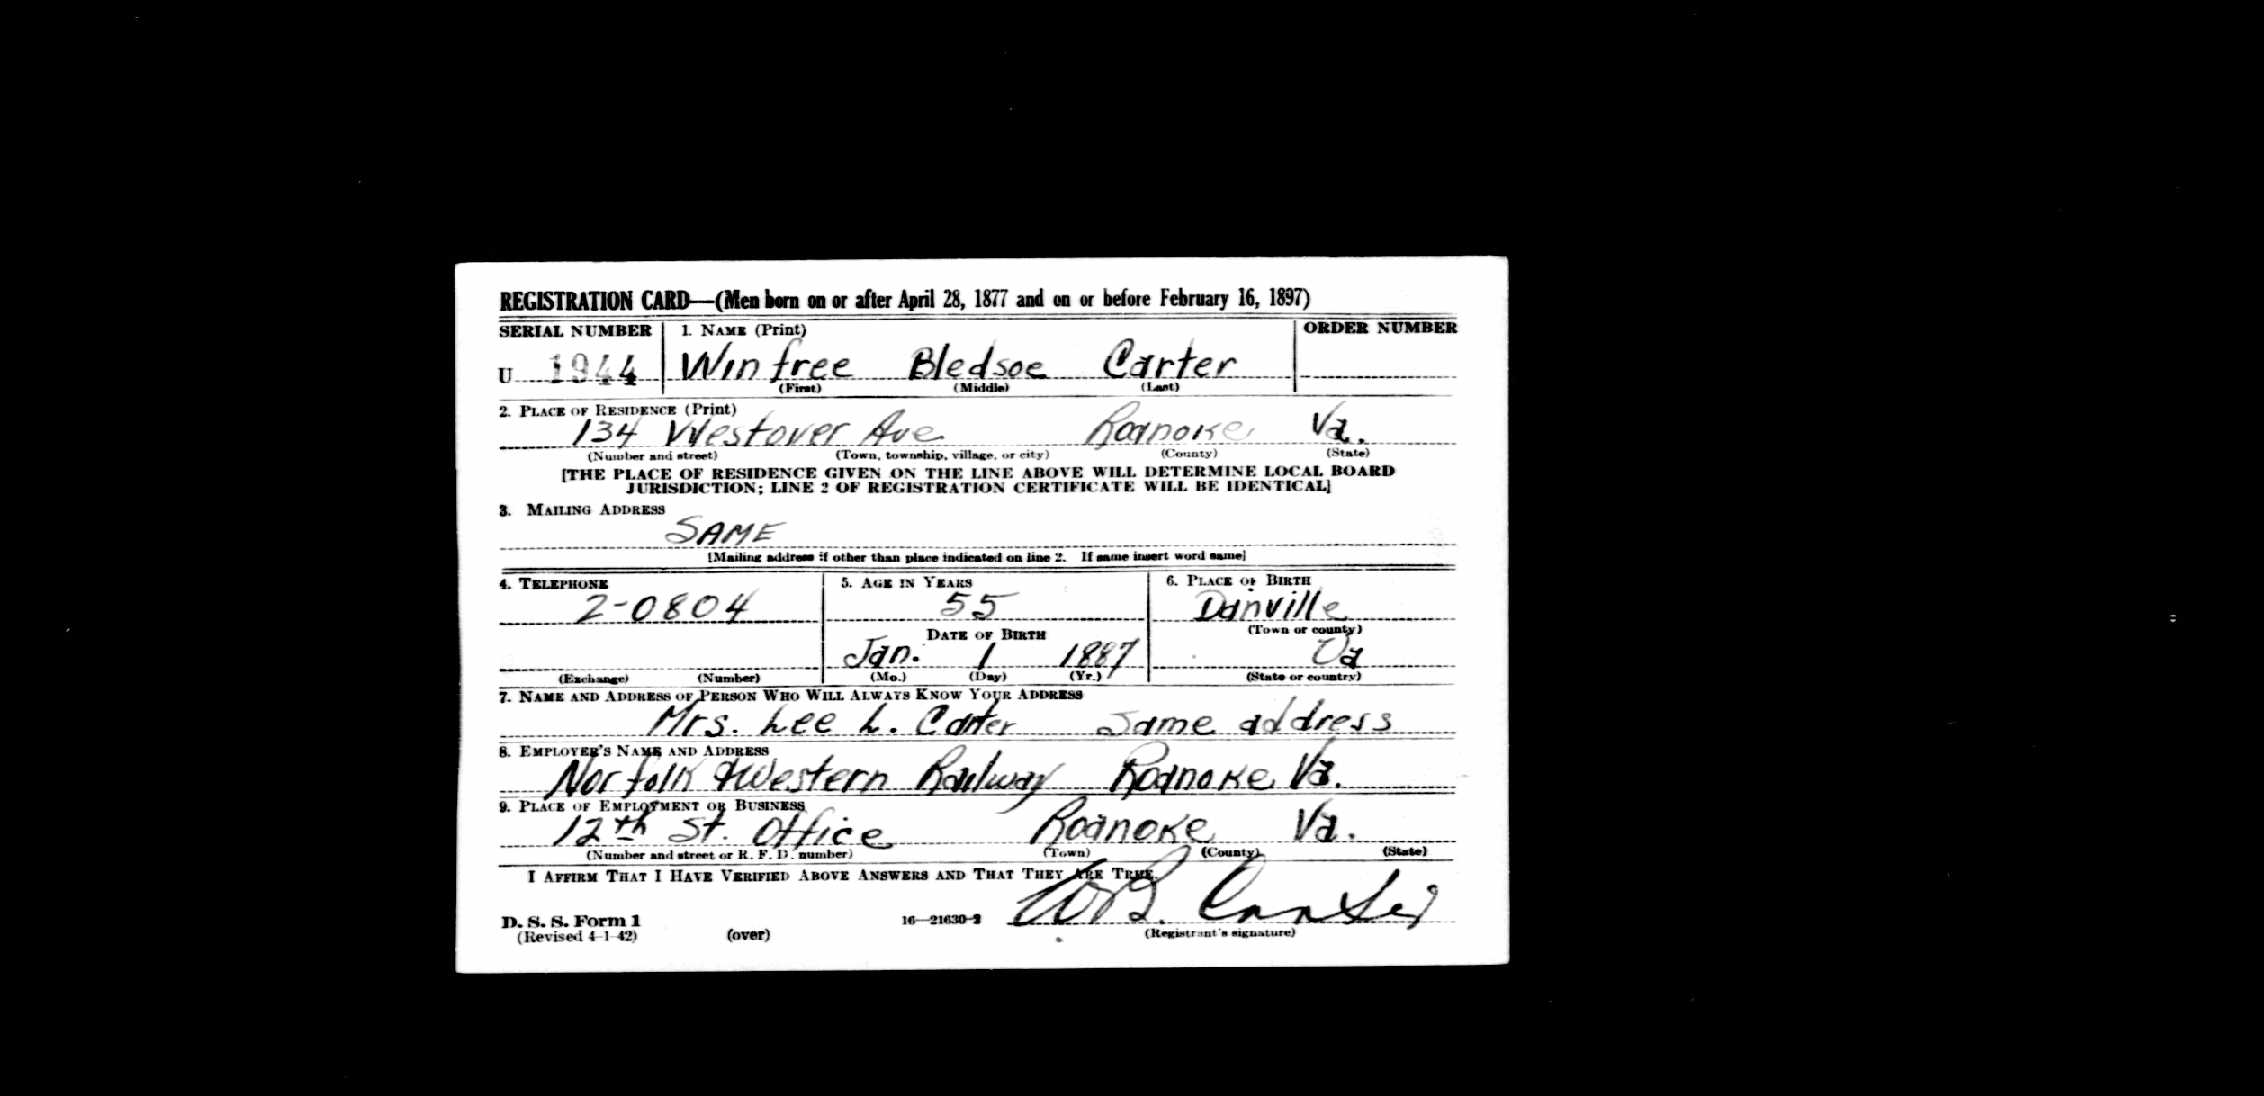 REGISTRATION CARD—(Men born on or after April 28, 1877 and on or before February 16, 1897)
SERIAL NUMBER 1. NAME (Print) ORDER NUMBER
U 1944 Winfree Bledsoe Carter
(First) (Middle) (Last)
2. PLACE OF RESIDENCE (Print)
134 Westover Ave Roanoke Va.
(Number and street) (Town, township, village, or city) (County) (State)
[THE PLACE OF RESIDENCE GIVEN ON THE LINE ABOVE WILL DETERMINE LOCAL BOARD
JURISDICTION; LINE 2 OF REGISTRATION CERTIFICATE WILL BE IDENTICAL]
3. MAILING ADDRESS
SAME
[Mailing address if other than place indicated on line 2. If same insert word same]
4. TELEPHONE 5. AGE IN YEARS 6. PLACE OF BIRTH
2-0804 55 Danville
DATE OF BIRTH (Town or county)
Jan. 1 1887 Va
(Exchange) (Number) (Mo.) (Day) (Yr.) (State or country)
7. NAME AND ADDRESS OF PERSON WHO WILL ALWAYS KNOW YOUR ADDRESS
Mrs. Lee L. Carter Same address
8. EMPLOYER'S NAME AND ADDRESS
Norfolk & Western Railway Roanoke Va.
9. PLACE OF EMPLOYMENT OR BUSINESS
12th St. Office Roanoke Va.
(Number and street or R. F. D. number) (Town) (County) (State)
I AFFIRM THAT I HAVE VERIFIED ABOVE ANSWERS AND THAT THEY ARE TRUE.
D. S. S. Form 1 16—21630-2 WB. Carter
(Revised 4-1-42) (over) (Registrant's signature)